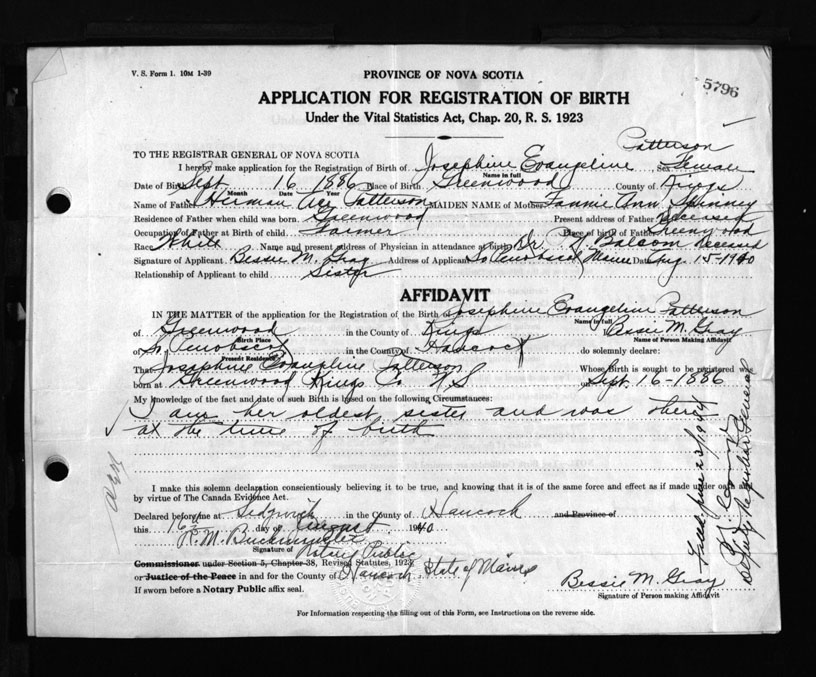 V. S. Form 1. 10M 1-39
PROVINCE OF NOVA SCOTIA
5796
APPLICATION FOR REGISTRATION OF BIRTH
Under the Vital Statistics Act, Chap. 20, R. S. 1923
Patterson
TO THE REGISTRAR GENERAL OF NOVA SCOTIA
I hereby make application for the Registration of Birth of Josephine Evangeline Sex Female
Name in full
Date of Birth Sept. 16 1886 Place of Birth Greenwood County of Kings
Month Date Year
Name of Father Herman Patterson MAIDEN NAME of Mother Fannie Ann Spinney
Residence of Father when child was born. Greenwood Present address of Father Deceased
Occupation of Father at Birth of child. Farmer Place of Birth of Father Greenwood
Race White Name and present address of Physician in attendance at birth Dr. Balsom deceased
Signature of Applicant Bessie M. Gray Address of Applicant So Penobscot Maine Date Aug 15-1940
Relationship of Applicant to child Sister
AFFIDAVIT
IN THE MATTER of the application for the Registration of the Birth of Josephine Evangeline Patterson
Name in full
of Greenwood in the County of Kings Bessie M. Gray
Birth Place Name of Person Making Affidavit
of So. Penobscot in the County of Hancock do solemnly declare:
Present Residence
That Josephine Evangeline Patterson Whose Birth is sought to be registered was
born at Greenwood Kings Co N.S on Sept. 16-1886
My knowledge of the fact and date of such Birth is based on the following Circumstances:
I am her oldest sister and was there
at the time of birth
I make this solemn declaration conscientiously believing it to be true, and knowing that it is of the same force and effect as if made under oath and
by virtue of The Canada Evidence Act.
Declared before me at Sedgwick in the County of Hancock and Province of
this 16th day of August 1940
R. M. Buckminster
Signature of Notary Public
Commissioner under Section 5, Chapter 38, Revised Statutes, 1923
or Justice of the Peace in and for the County of Hancock State of Maine
If sworn before a Notary Public affix seal.
Bessie M. Gray
Signature of Person making Affidavit
For Information respecting the filling out of this Form, see Instructions on the reverse side.
Filed June 23/1944
Deputy Registrar General